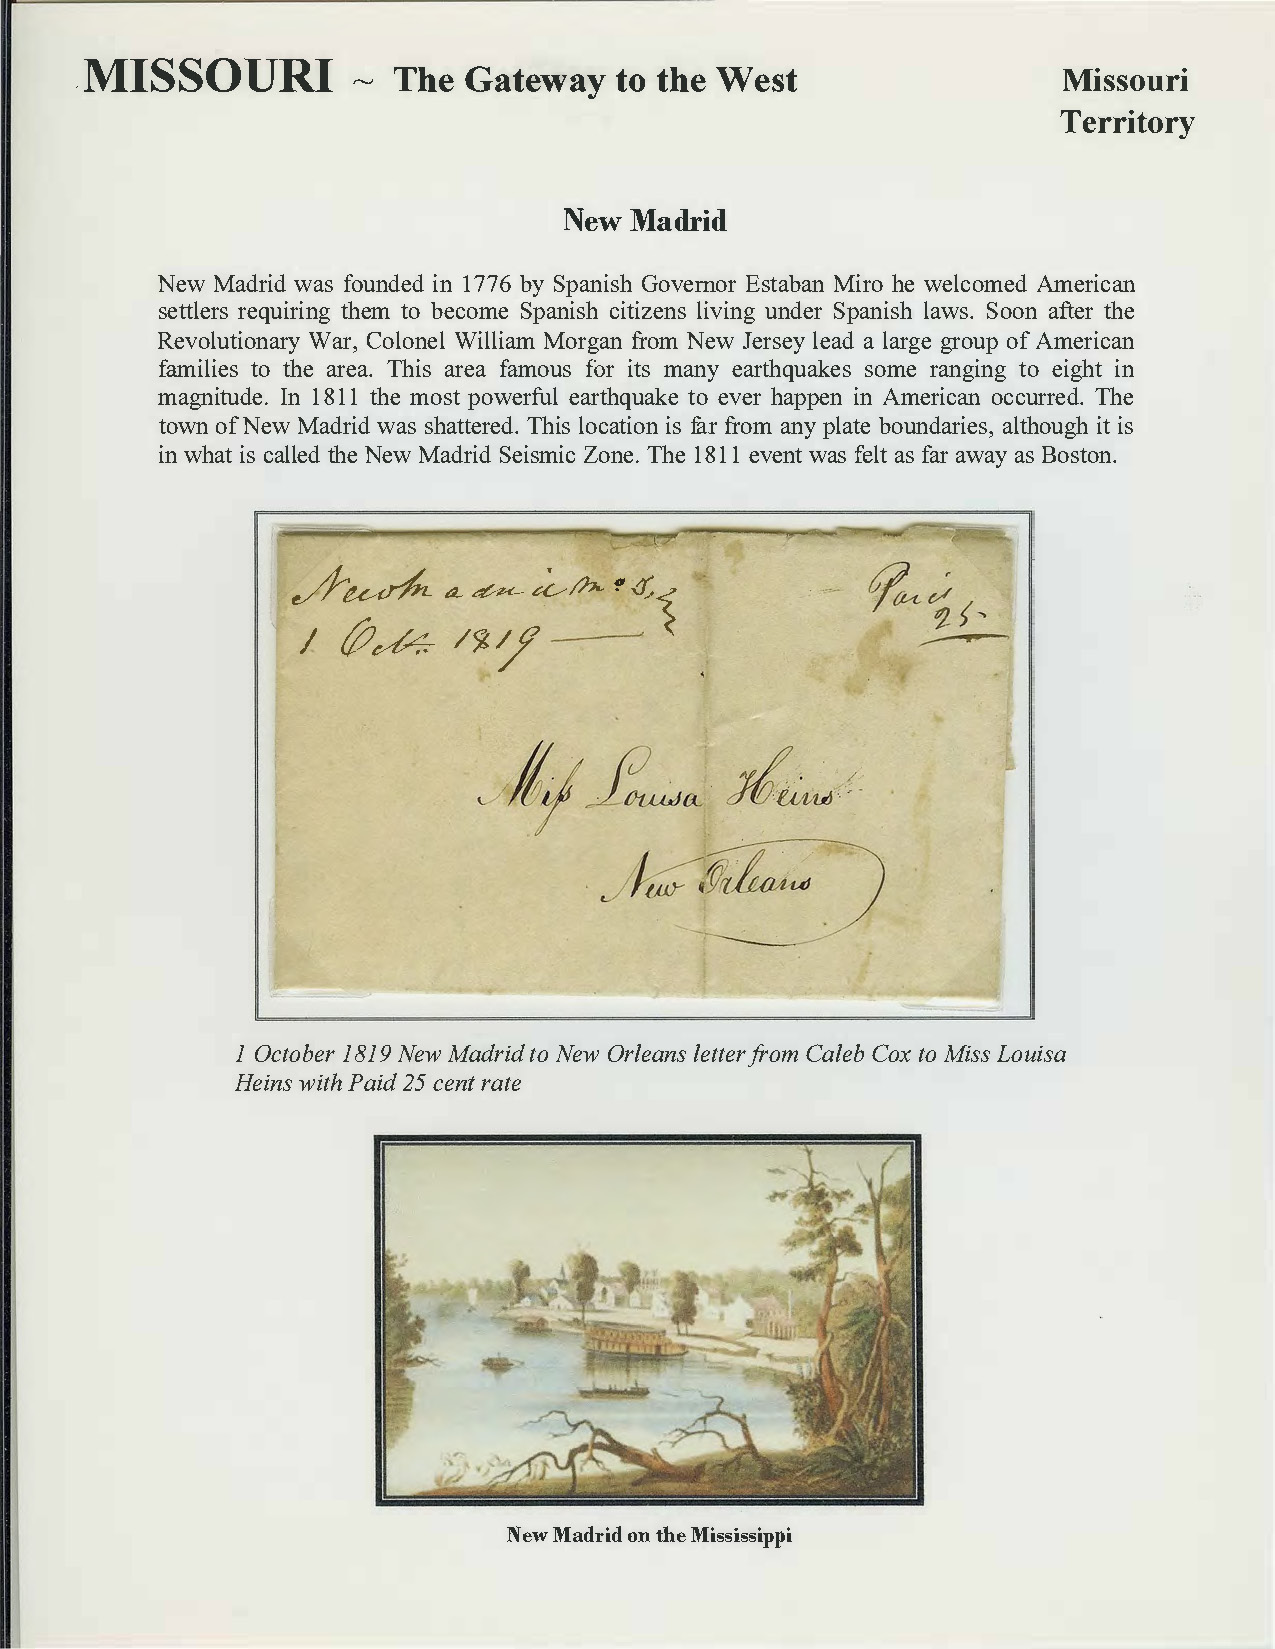 MISSOURI ~ The Gateway to the West
Missouri
Territory
New Madrid
New Madrid was founded in 1776 by Spanish Governor Estaban Miro he welcomed American
settlers requiring them to become Spanish citizens living under Spanish laws. Soon after the
Revolutionary War, Colonel William Morgan from New Jersey lead a large group of American
families to the area. This area famous for its many earthquakes some ranging to eight in
magnitude. In 1811 the most powerful earthquake to ever happen in American occurred. The
town of New Madrid was shattered. This location is far from any plate boundaries, although it is
in what is called the New Madrid Seismic Zone. The 1811 event was felt as far away as Boston.
New Madrid Mo. T.
1 Oct. 1819
Paid
25
Miss Louisa Heins
New Orleans
1 October 1819 New Madrid to New Orleans letter from Caleb Cox to Miss Louisa
Heins with Paid 25 cent rate
New Madrid on the Mississippi